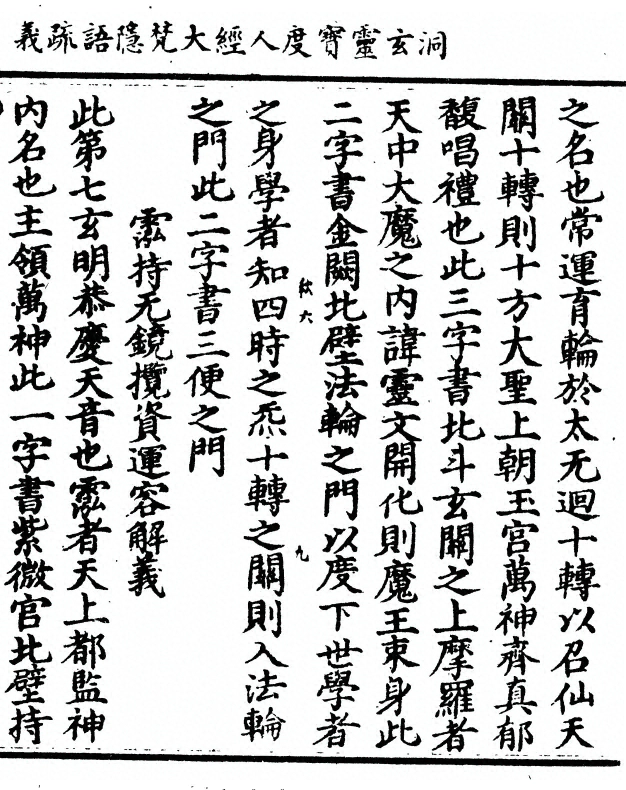 洞玄靈寶度人經大梵隱語疏義
之名也常運育輪於太无迴十轉以召仙天
關十轉則十方大聖上朝玉宮萬神齊真郁
馥唱禮也此三字書北斗玄關之上摩羅者
天中大魔之內諱靈文開化則魔王束身此
二字書金闕北壁法輪之門以度下世學者
之身學者知四時之炁十轉之關則入法輪
之門此二字書三便之門
霐持无鏡攬資運容解義
此第七玄明恭慶天音也霐者天上都監神
內名也主領萬神此一字書紫微宮北壁持